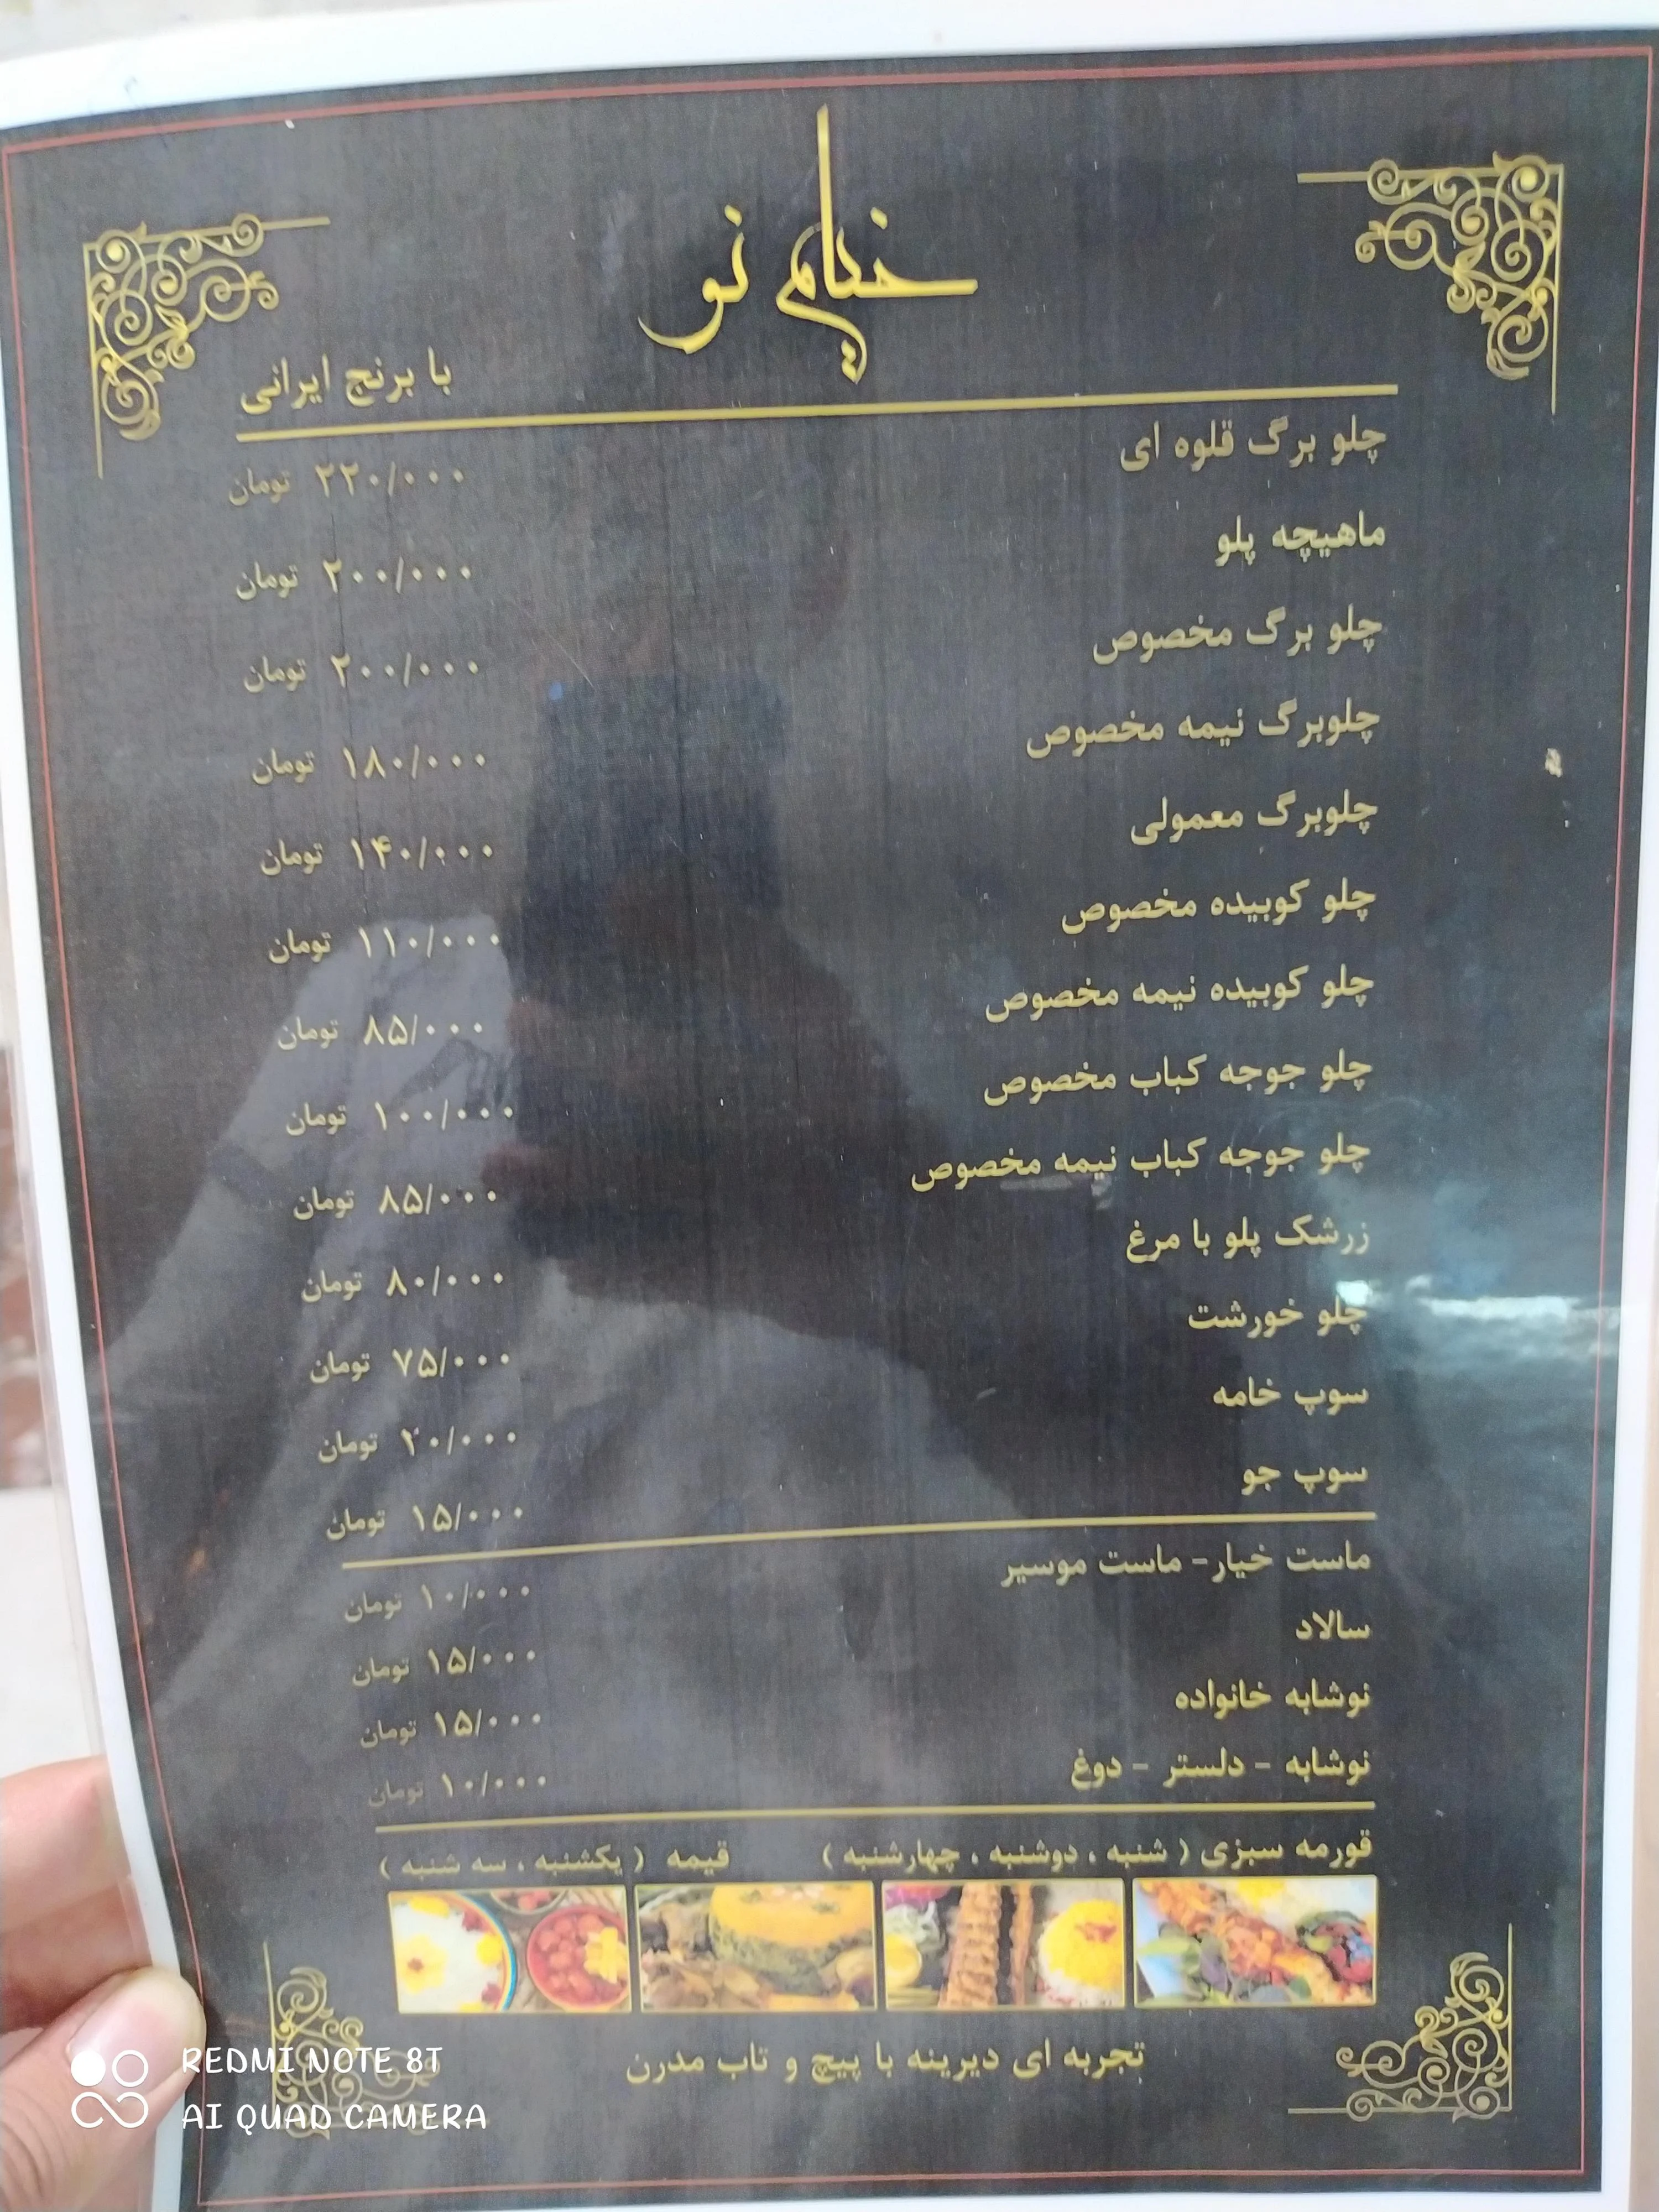 خیام نو
با برنج ایرانی
چلو برگ قلوه ای ۲۲۰/۰۰۰ تومان
ماهیچه پلو ۲۰۰/۰۰۰ تومان
چلو برگ مخصوص ۲۰۰/۰۰۰ تومان
چلوبرگ نیمه مخصوص ۱۸۰/۰۰۰ تومان
چلوبرگ معمولی ۱۴۰/۰۰۰ تومان
چلو کوبیده مخصوص ۱۱۰/۰۰۰ تومان
چلو کوبیده نیمه مخصوص ۸۵/۰۰۰ تومان
چلو جوجه کباب مخصوص ۱۰۰/۰۰۰ تومان
چلو جوجه کباب نیمه مخصوص ۸۵/۰۰۰ تومان
زرشک پلو با مرغ ۸۰/۰۰۰ تومان
چلو خورشت ۷۵/۰۰۰ تومان
سوپ خامه ۲۰/۰۰۰ تومان
سوپ جو ۱۵/۰۰۰ تومان
ماست خیار- ماست موسیر ۱۰/۰۰۰ تومان
سالاد ۱۵/۰۰۰ تومان
نوشابه خانواده ۱۵/۰۰۰ تومان
نوشابه - دلستر - دوغ ۱۰/۰۰۰ تومان
قورمه سبزی ( شنبه ، دوشنبه ، چهارشنبه ) قیمه ( یکشنبه ، سه شنبه )
تجربه ای دیرینه با پیچ و تاب مدرن
REDMI NOTE 8T
AI QUAD CAMERA